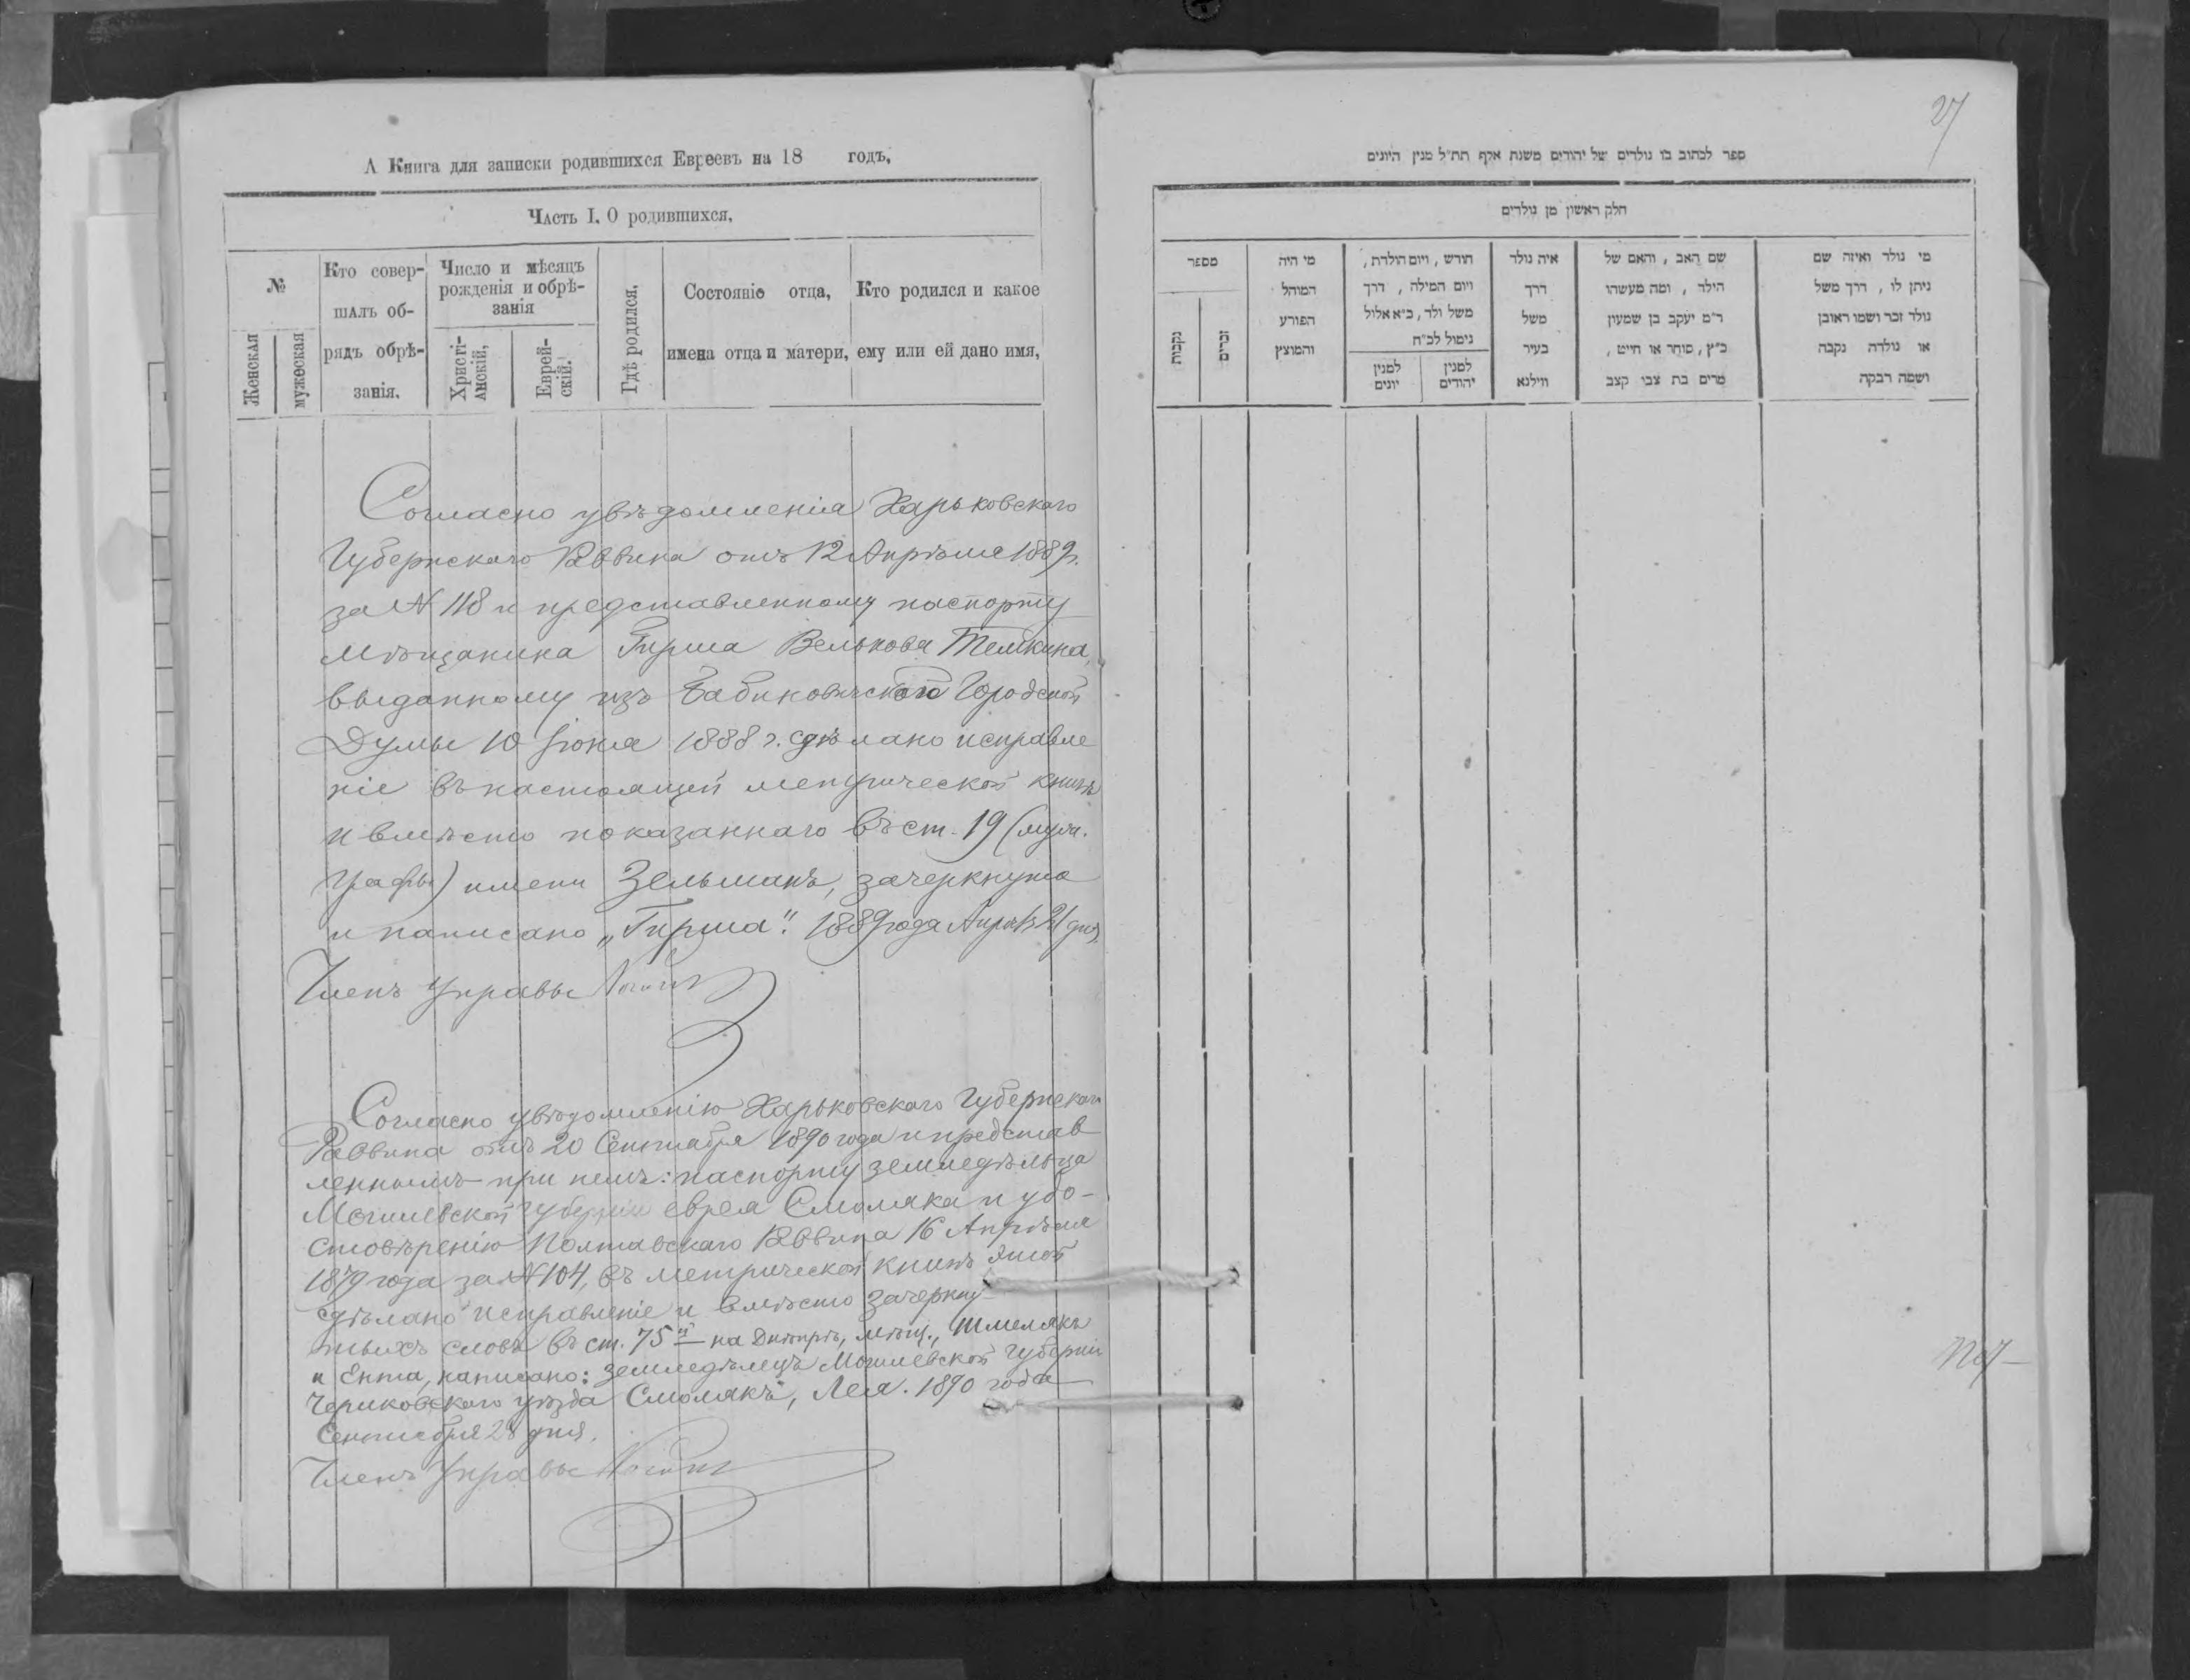 А Книга для записки родившихся Евреевъ на 18 годъ,
Часть I. О родившихся,
№
Женская
мужеская
Кто совер-
шалъ об-
рядъ обрѣ-
занія.
Число и мѣсяцъ
рожденія и обрѣ-
занія
Христі-
анскій,
Еврей-
скій.
Гдѣ родился.
Состояніе отца,
имена отца и матери,
Кто родился и какое
ему или ей дано имя,
Согласно увѣдомленія Харьковскаго
Губернскаго Раввина отъ 12 Апрѣля 1889 г.
за № 118 и представленному паспорту
мѣщанина Гирша Велькова Темкина,
выданному изъ Бабиновичской Городской
Думы 10 Іюня 1888 г. сдѣлано исправле
ніе въ настоящей метрической книгѣ
и вмѣсто показаннаго въ ст. 19 (муж.
графы) имени Зельманъ, зачеркнуто
и написано „Гирша". 1889 года Апрѣля 21 дня.
Членъ Управы
Согласно увѣдомленію Харьковскаго Губернскаго
Раввина отъ 20 Сентября 1890 года и представ
леннымъ при немъ: паспорту земледѣльца
Могилевской губерніи еврея Смоляка и удо-
стовѣренію Полтавскаго Раввина 16 Апрѣля
1879 года за № 104, въ метрической книгѣ этой
сдѣлано исправленіе и вмѣсто зачеркну-
тыхъ словъ въ ст. 75й на Днѣпрѣ, мѣщ., Шмелякъ
и Ента, написано: земледѣлецъ Могилевской губерніи
Чериковскаго уѣзда Смолякъ, Лея. 1890 года
Сентября 28 дня.
Членъ Управы
27
ספר לכתוב בו נולדים של יהודים משנת אלף תת״ל מנין היונים
חלק ראשון מן נולדים
מספר
נקבות
זכרים
מי היה
המוהל
הפורע
והמוצץ
חודש, ויום הולדת,
ויום המילה, דרך
משל ולד, כ״א אלול
נימול לכ״ח
למנין
יונים
למנין
יהודים
איה נולד
דרך
משל
בעיר
ווילנא
שם האב, והאם של
הילד, ומה מעשהו
ר״מ יעקב בן שמעון
כ״ץ, סוחר או חייט,
מרים בת צבי קצב
מי נולד ואיזה שם
ניתן לו, דרך משל
נולד זכר ושמו ראובן
או נולדה נקבה
ושמה רבקה